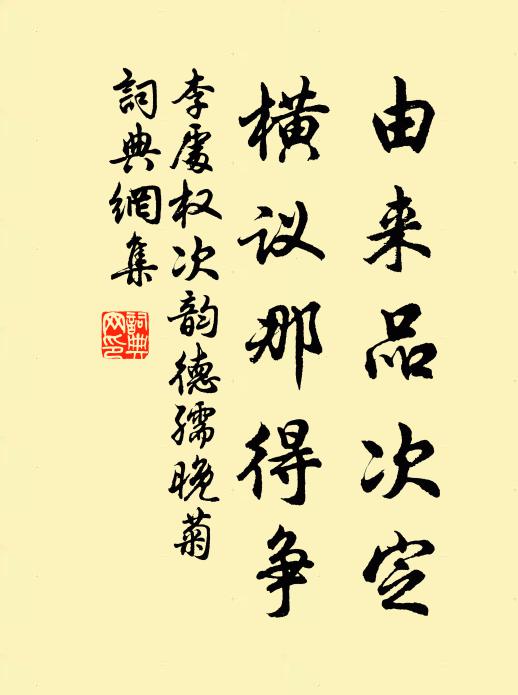 由来品次定
横议那得争
李處权次韵德孺晚菊
詞典網集
詞典
网印